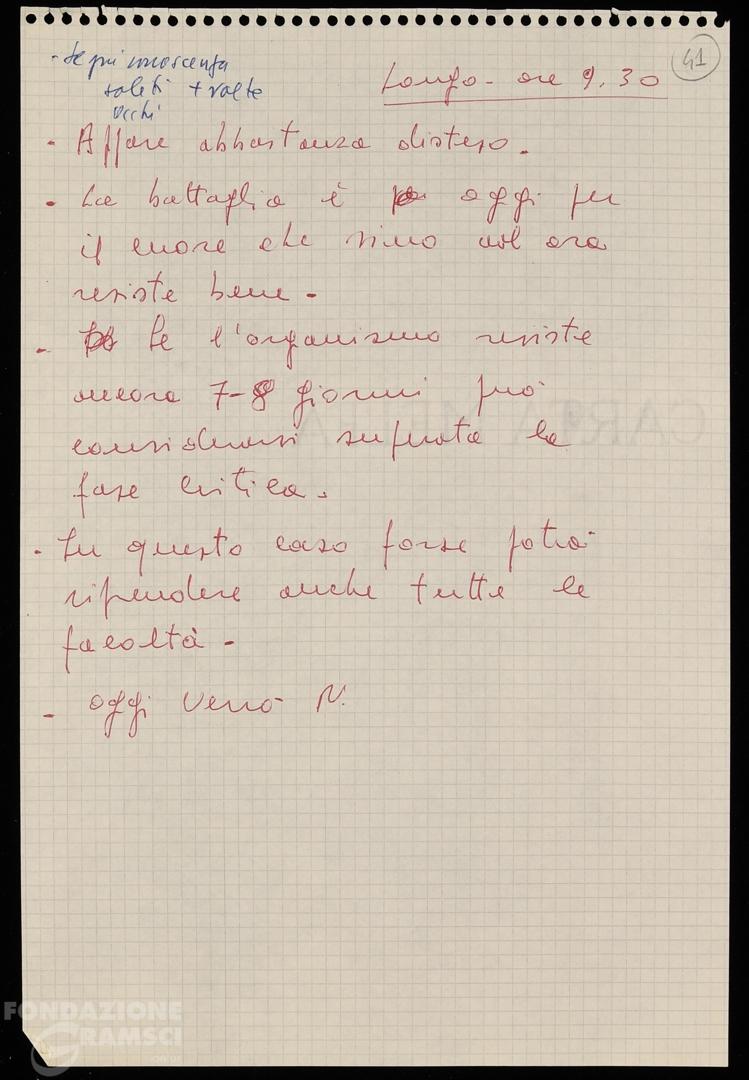 41
Longo - ore 9.30
- segni conoscenza
saluti + volte
occhi
- Appare abbastanza disteso.
- La battaglia è oggi per
il cuore che sino ad ora
resiste bene -
- Se l'organismo resiste
ancora 7-8 giorni può
considerarsi superata la
fase critica.
- In questo caso forse potrà
riprendere anche tutte le
facoltà -
- oggi verrò N.
FONDAZIONE
GRAMSCI